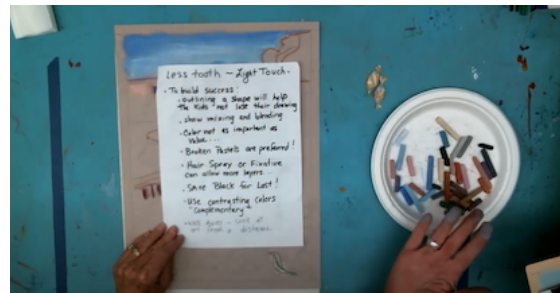 Less tooth - Light Touch.
• To build success:
• outlining a shape will help
the kids "not lose their drawing
• show mixing and blending
• Color not as important as
Value...
• Broken Pastels are preferred!
• Hair Spray or Fixative
can allow more layers...
• Save Black for Last!
• Use contrasting colors
"Complementary"
at
distance